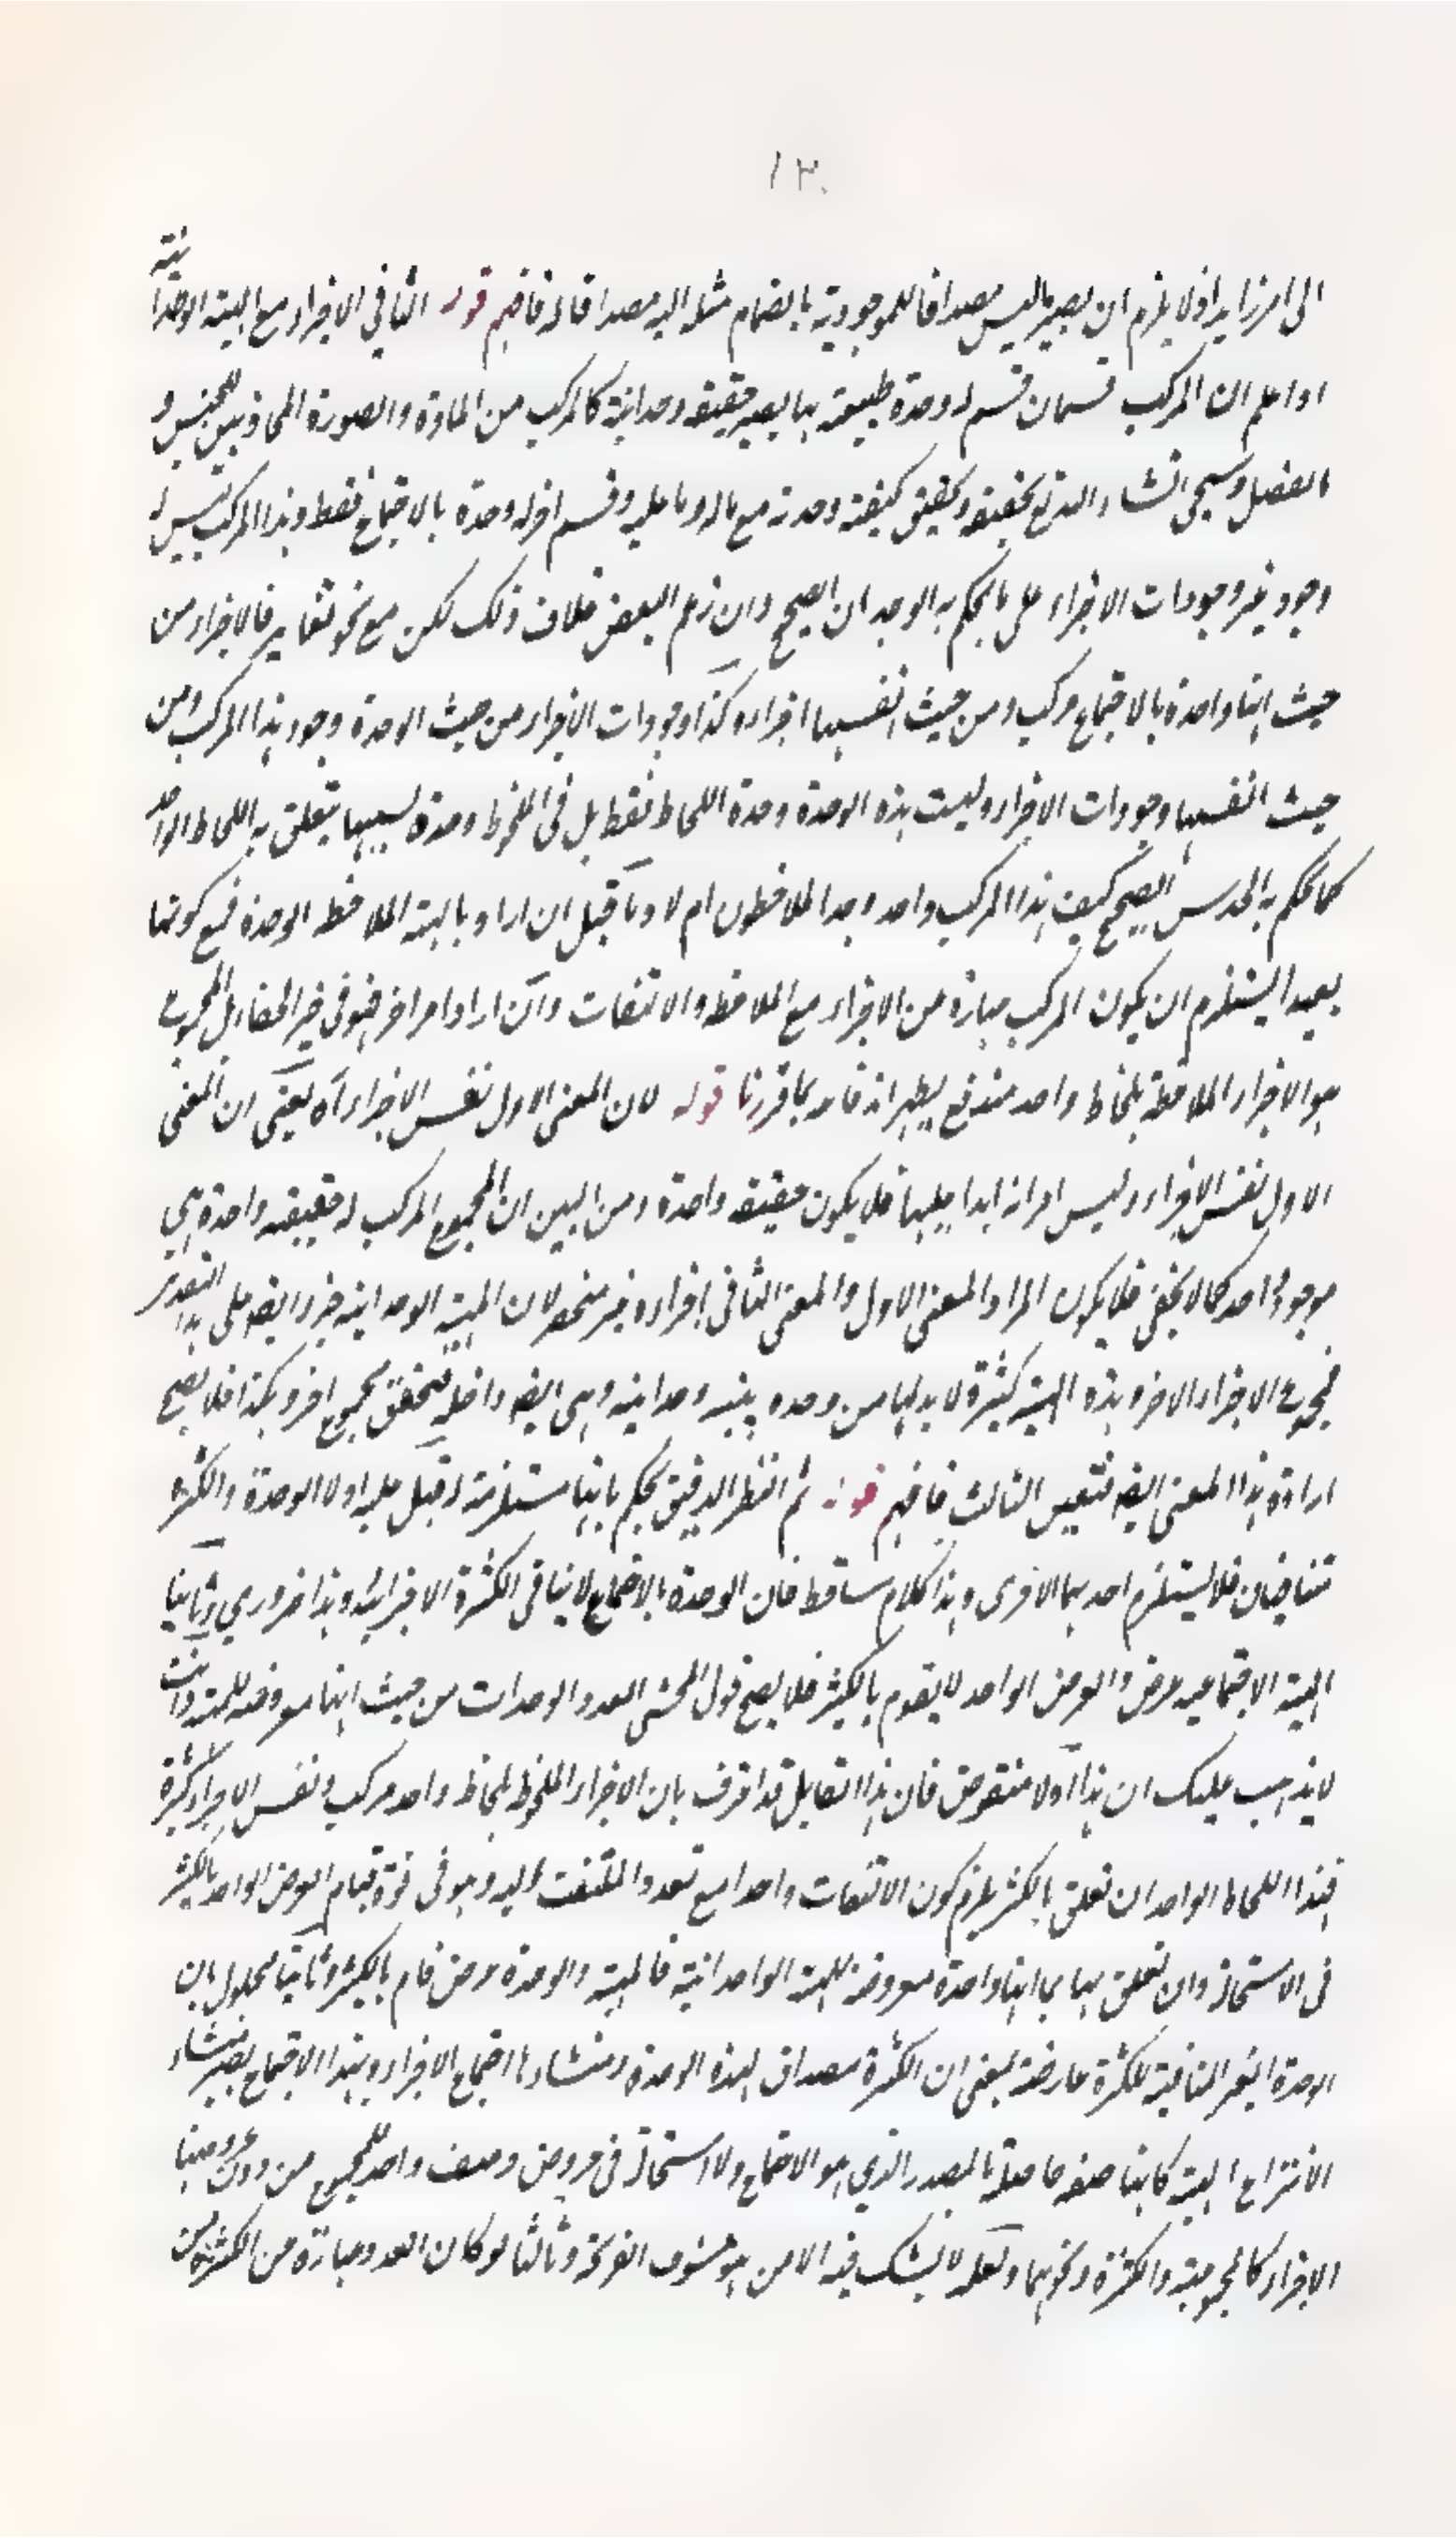 ١٣٠
الى امر زايد اولا يلزم ان يصير ما ليس مصداقا للموجودية بانضمام مثله اليه مصداقا له فافهم قوله الثاني الاجزاء مع الهيئة الوحدانية
اه اعلم ان المركب قسمان قسم له وحدة طبيعية بها يصير حقيقة وحدانية كالمركب من المادة والصورة المحاذيتين للجنس و
الفصل وسيجئ انشاء الله تع تحقيقه وتحقيق كيفية وحدته مع ماله وما عليه وقسم اخر له وحدة بالاجتماع فقط وهذا المركب ليس له
وجود غير وجودات الاجزاء على ما يحكم به الوجدان الصحيح وان زعم البعض خلاف ذلك لكن مع نحو تغاير فالاجزاء من
حيث انها واحدة بالاجتماع مركب ومن حيث انفسها اجزاء وكذا وجودات الاجزاء من حيث الوحدة وجود هذا المركب ومن
حيث انفسها وجودات الاجزاء وليست هذه الوحدة وحدة اللحاظ فقط بل في الملحوظ وحدة بسببها يتعلق به اللحاظ الواحد
كما يحكم به الحدس الصحيح كيف هذا المركب واحد وجد الملاحظون ام لا وما قيل ان اراد بالهيئة الملاحظه الوحدة فمع كونها
بعيدا يستلزم ان يكون المركب عبارة من الاجزاء مع الملاحظه والالتفات وان اراد امرا اخر فهو في خير الخفاء بل المجموع
هو الاجزاء الملاحظة بلحاظ واحد مندفع يظهر اندفاعه بما قررنا قوله لان المعنى الاول نفس الاجزاء اه يعنى ان المعنى
الاول نفس الاجزاء وليس امرا زايدا عليها فلا يكون حقيقة واحدة ومن البين ان المجموع المركب له حقيقة واحدة هي
موجود واحد كما لا يخفى فلا يكون المراد المعنى الاول والمعنى الثاني اجزاء غير منحصر لان الهيئة الوحدانية جزء ايضه على هذا التقدير
فمجموع الاجزاء الاخر وهذه الهيئة كثيرة لا بد لها من وحده وحدانيه وهي ايضه داخله فيتحقق مجموع اخر وهكذا فلا يصح
ارادة هذا المعنى ايضه فتعين الثالث فافهم قوله ثم النظر الدقيق يحكم بانها مستلزمة له قيل عليه اولا الوحدة والكثرة
تنافيان فلا يستلزم احدهما الاخرى وهذا كلام ساقط فان الوحدة بالاجتماع لا ينافى الكثرة الاجزائية وهذا ضروري وثانيا
الهيئة الاجتماعيه عرض والعرض الواحد لا يقوم بالكثير فلا يصح قول المحشى العدد الوحدات من حيث انها معروضه للهيئة وانت
لا يذهب عليك ان هذا اولا منقوض فان هذا القايل قد اعترف بان الاجزاء الملحوظ بلحاظ واحد مركب ونفس الاجزاء كثيرة
فهذا اللحاظ الواحد ان تعلق بالكثير يلزم كون الالتفات واحدا مع تعدد الملتفت اليه وهو في قوة قيام العرض الواحد بالكثير
في الاستحالة وان تعلق بها بما انها واحدة معروضة للهيئة الواحدانية فالهيئة والوحدة عرض قام بالكثير وثانيا محلول بان
الوحدة الغير المنافية للكثرة عارضة بمعنى ان الكثرة مصداق لهذه الوحدة ومنشاءها اجتماع الاجزاء وبهذا الاجتماع يصير منشاء
الانتزاع الهيئة كانها صفه حاصلة بالمصدر الذي هو الاجتماع ولا استحالة في عروض وصف واحد للمجموع من دون عروضها
الاجزاء كالمجموعية والكثرة ونحوهما ولعله لا يشك فيه الا من هو مشوف القريحة وثالثا لو كان العدد عبارة عن الكثرة من